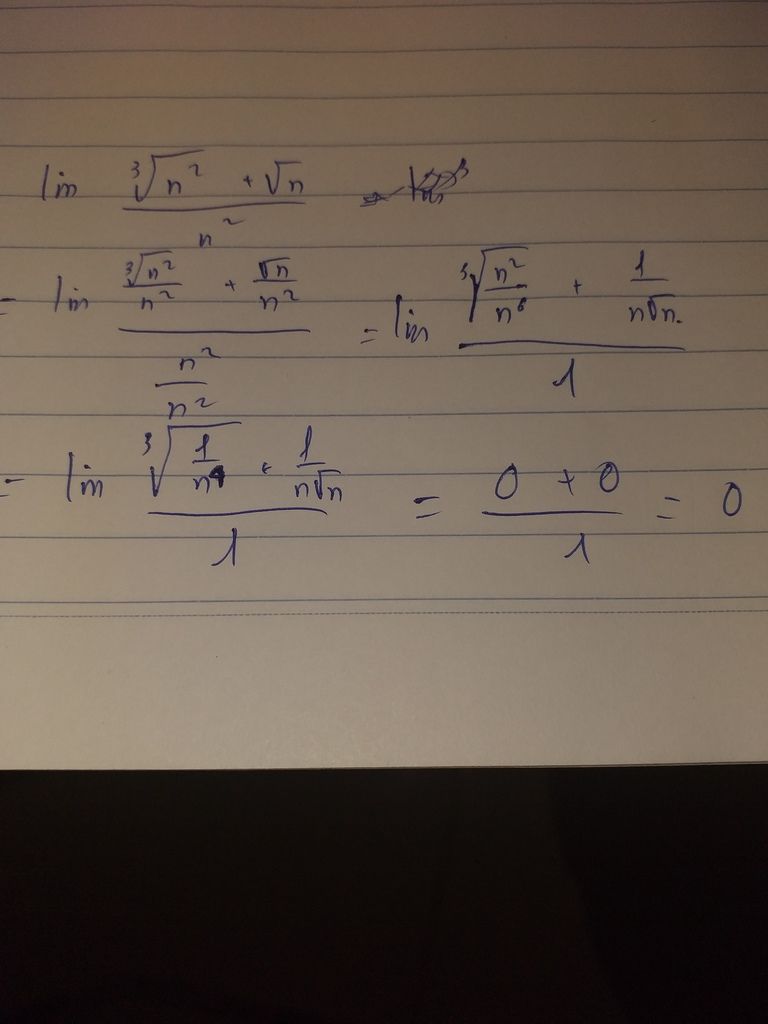 lim (∛n² + √n) / n² =
= lim (∛n²/n² + √n/n²) / (n²/n²) = lim (∛(n²/n⁶) + 1/(n√n)) / 1
= lim (∛(1/n⁴) + 1/(n√n)) / 1 = (0 + 0) / 1 = 0